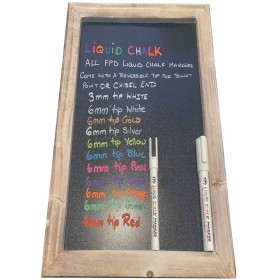 LIQUID CHALK
ALL FPD LIQUID CHALK MARKERS
COME WITH A REVERSIBLE TIP FOR BULLET
POINT OR CHISEL END
3mm tip WHITE
6mm tip White
6mm tip Gold
6mm tip Silver
6mm tip Yellow
6mm tip Blue
6mm tip Pink
6mm tip
6mm tip Orange
6mm tip Green
6mm tip Red
LIQUID CHALK MARKER
LIQUID CHALK MARKER